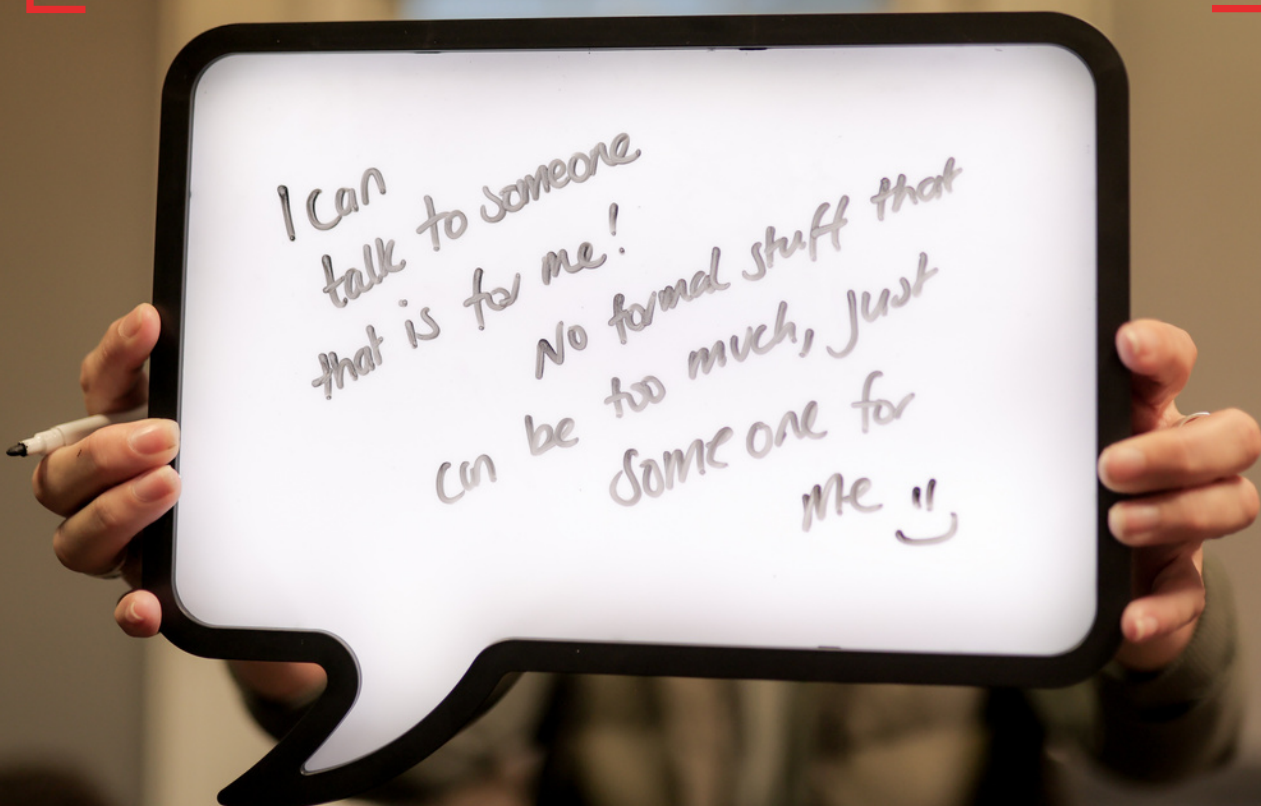 I can
talk to someone
that is for me!
No formal stuff that
can be too much, just
someone for
me